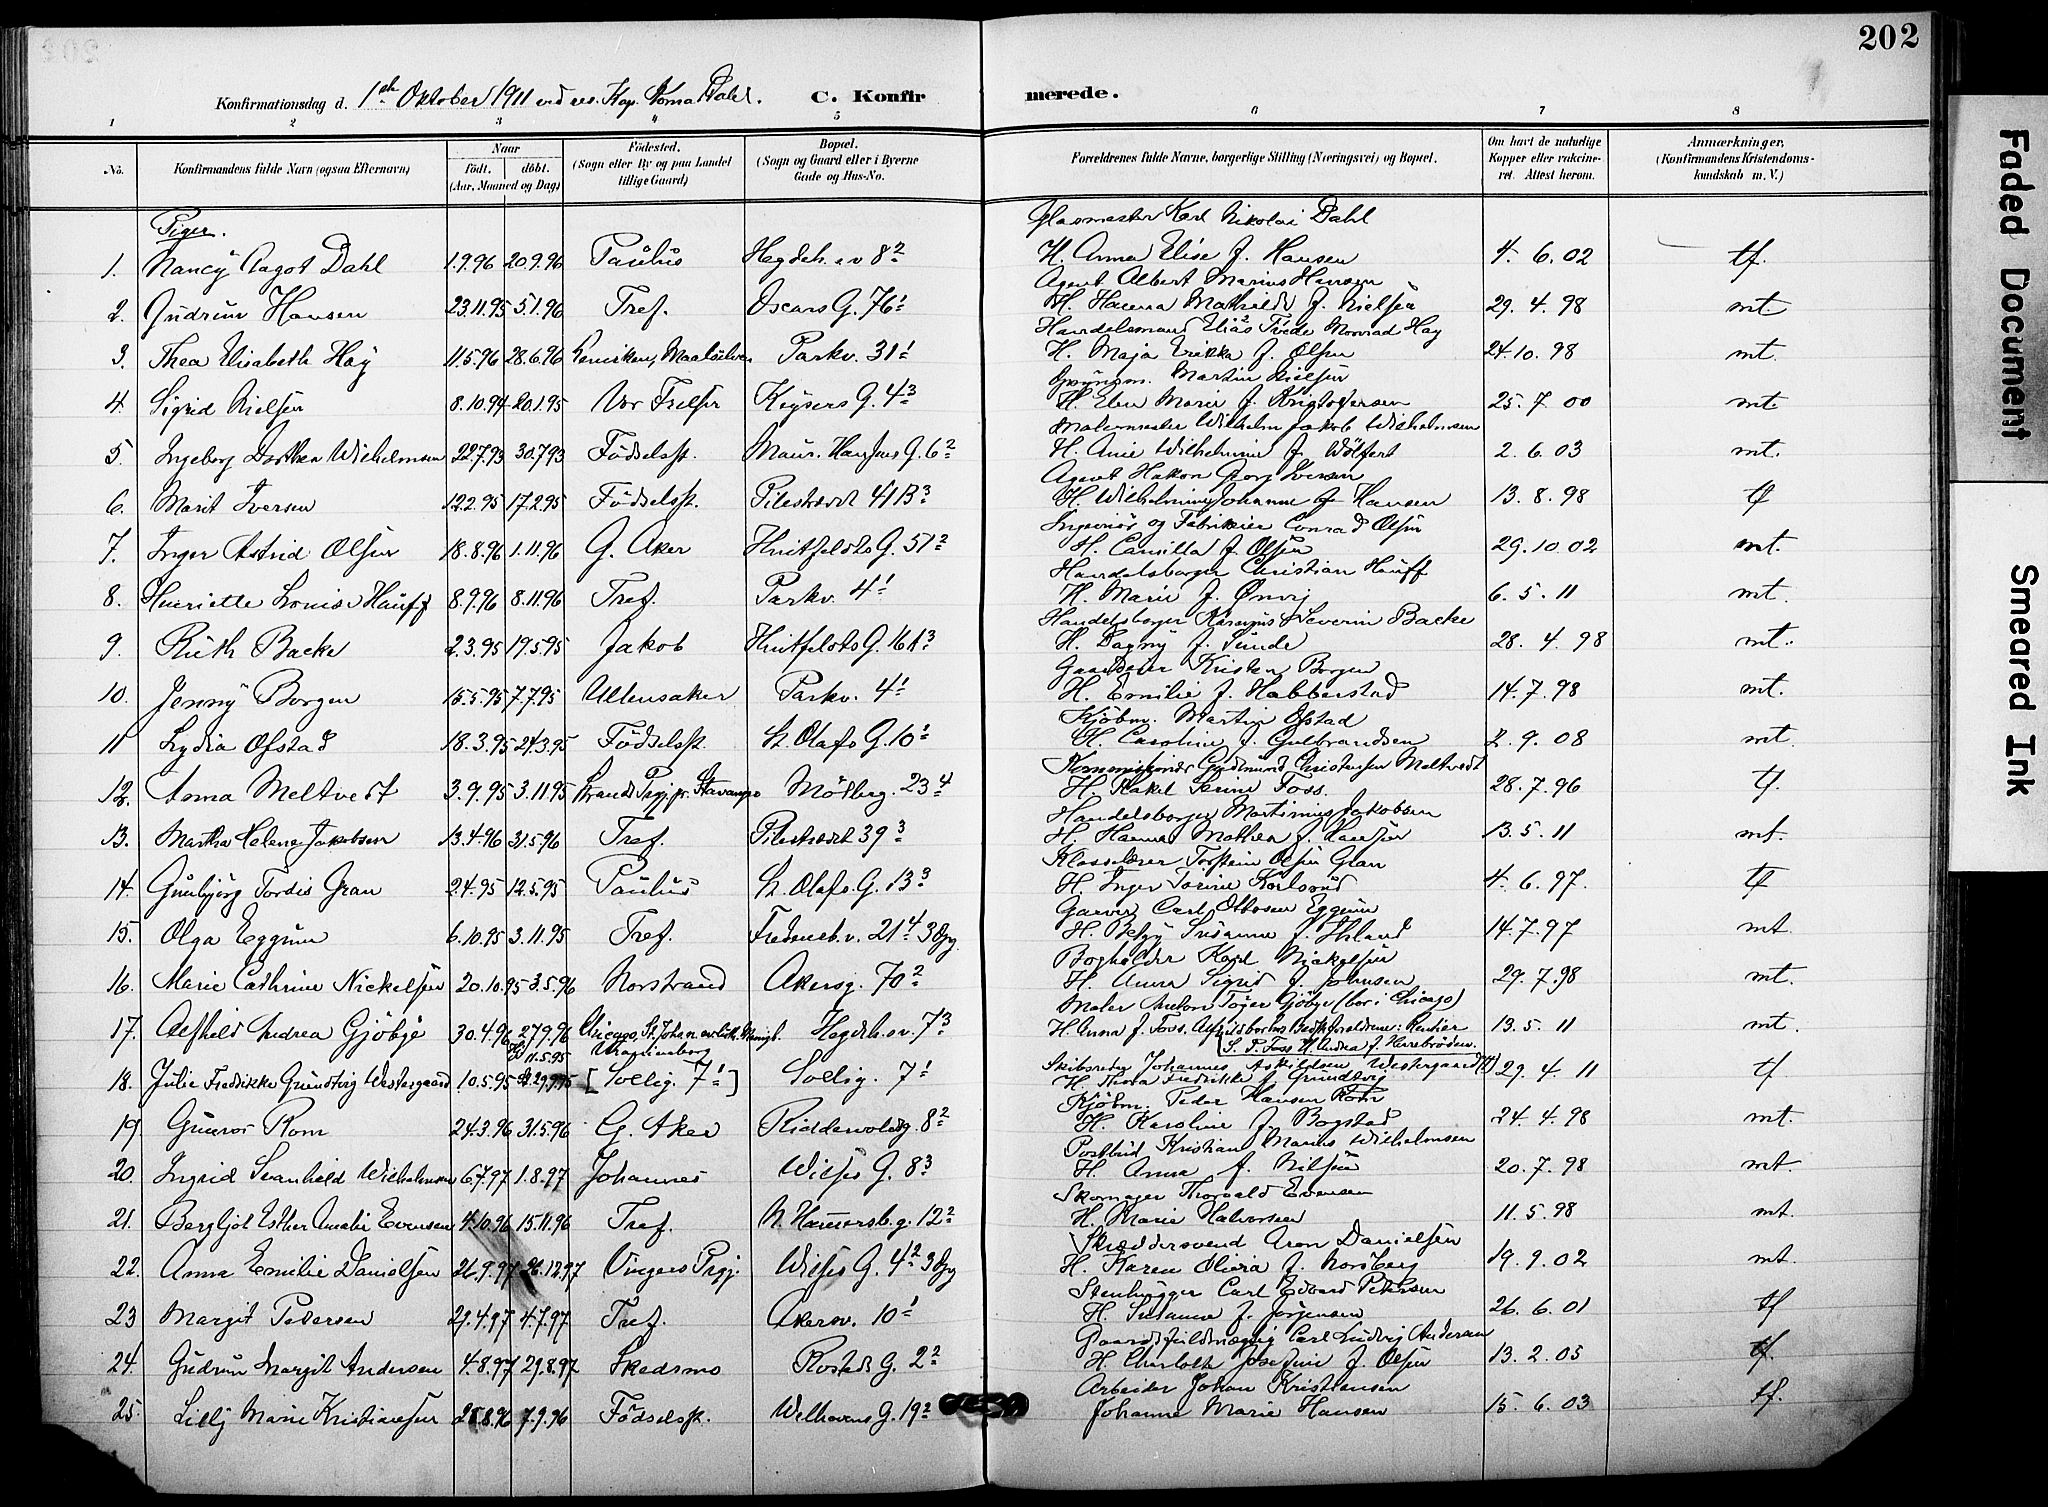 202
Konfirmationsdag d. 1ste Oktober 1911 ved res. Kap. Dahl. C. Konfirmerede.
1 2 3 4 5 6 7 8
No. Konfirmandens fulde Navn (ogsaa Efternavn) Naar födt. döbt. (Aar, Maaned og Dag) Födested. (Sogn eller By og paa Landet tillige Gaard) Bopæl. (Sogn og Gaard eller i Byerne Gade og Hus-No. Forældrenes fulde Navne, borgerlige Stilling (Næringsvei) og Bopæl. Om havt de naturlige Kopper eller vakcineret. Attest herom. Anmærkninger, (Konfirmandens Kristendomskundskab m. V.)
Piger.
Glasmester Karl Nikolai Dahl
1. Nancy Aagot Dahl 1.9.96 20.9.96 Paulus Hegdeh.sv 8² H. Anna Elise f. Hansen 4. 6. 02 tf.
Agent Albert Marius Hansen
2. Gudrun Hansen 23.11.95 5.1.96 Tref. Oscars G. 76¹ H. Hanna Mathilde f. Nielsen 29. 4. 98 mt.
Handelsmand Elias Monrad Hay
3. Thea Elisabeth Hay 11.5.96 28.6.96 Maalselven Parkv. 31¹ H. Maja Erikka f. Olsen 24. 10. 98 mt.
Martin Nielsen
4. Sigrid Nielsen 8.10.94 20.1.95 Vor Frelser Keysers G. 4³ H. Elen Marie f. Kristofersen 25. 7. 00 mt.
Malermester Wilhelm Jakob Wilhelmsen
5. Ingeborg Dorthea Wilhelmsen 22.7.93 30.7.93 Födselsst. Maur. Hansens G. 6² H. Anie Wilhelmine f. Wölfert 2. 6. 03 mt.
Agent Hakon Georg Iversen
6. Marit Iversen 12.2.95 17.2.95 Födselsst. Pilestrædet 41B³ H. Wilhelmine Johanne f. Hansen 13. 8. 98 tf
Ingeniör og Fabrikeier Conrad Olsen
7. Inger Astrid Olsen 18.8.96 1.11.96 G. Aker Huitfeldts G. 51² H. Camilla f. Olsen 29. 10. 02 mt.
Handelsborger Christian Hauff
8. Henriette Louise Hauff 8.9.96 8.11.96 Tref. Parkv. 4¹ H. Marie f. Onvig 6. 5. 11 mt.
Handelsborger Rasmus Severin Backe
9. Ruth Backe 2.3.95 19.5.95 Jakob Huitfeldts G. 16A³ H. Dagny f. Sunde 28. 4. 98 mt.
Gaardeier Kristen Borgen
10. Jenny Borgen 15.5.95 7.7.95 Ullensaker Parkv. 4¹ H. Emilie f. Habberstad 14. 7. 98 mt.
Kjöbm. Martin Ofstad
11 Lydia Ofstad 18.3.95 24.3.95 Födselsst. St. Olafs G. 10¹ H. Caroline f. Gulbrandsen 2. 9. 08 mt.
Kommissionær Gudmund Christensen Meltvedt
12. Anna Meltvedt 3.9.95 3.11.95 Strand Prgj. pr. Stavanger Möllerg. 23⁴ H. Rakel Serine Foss. 28. 7. 96 tf.
Handelsborger Martinius Jakobsen
13. Martha Helene Jakobsen 13.4.96 31.5.96 Tref. Pilestrædet 39³ H. Hanna Mathea f. Hansen 13. 5. 11 mt.
Klasselærer Torstein Olsen Gran
14. Gunbjörg Tordis Gran 2.4.95 12.5.95 Paulus St. Olafs G. 13³ H. Inger Torine Karlsrud 4. 6. 97. tf
Garver Carl Ottosen Eggum
15. Olga Eggum 6.10.95 3.11.95 Tref. Fredensb.v. 21⁴ 3 Opg. H. Betzy Susanne f. 14. 7. 97 mt
Bogholder Karl Nickelsen
16. Marie Cathrine Nickelsen 20.10.95 3.5.96 Norstrand Akersg. 70² H. Anna Sigrid f. Johnsen 29. 7. 98 mt.
Maler Anton Töger Gjöbye (bor i Chicago)
17. Alfhild Andrea Gjöbye 30.4.96 27.9.96 Chicago, St. Johs. n. ev. luth. Menigh. Hegdeh.sv. 7³ H. Anna f. Foss. Alfhilds Bedsteforældrene: Rentier 13. 5. 11 mt.
Hd 11.5.95 S. P. Foss H. Andrea f. Harebröden.
Skibsreder Johannes Askildsen Westergaard (†)
18. Julie Fredrikke Grundtvig Westergaard 10.5.95 29.9.95 [Sollig. 7¹] Sollig. 7¹ H. Thora Fredrikke f. Grundtvig 29. 4. 11 tf
Kjöbm. Peder Hansen Rom
19. Gunvor Rom 24.3.96 31.5.96 G. Aker Riddervoldsg. 8² H. Karoline f. Bogstad 24. 4. 98 mt.
Postbud Kristian Marius Wilhelmsen
20. Ingrid Svanhild Wilhelmsen 6.7.97 1.8.97 Johannes Wilses G. 8³ H. Anna f. Nilsen 20. 7. 98 mt.
Skomager Thorvald Evensen
21. Bergljot Esther Amalie Evensen 4.10.96 15.11.96 Tref. N. Hammersb.g. 12² H. Marie Halvorsen 11. 5. 98 mt.
Skræddersvend Aron Danielsen
22. Anna Emilie Danielsen 26.9.97 26.12.97 Vingers Prgj. Wilses G. 4² 3 Opg H. Karen Olivia f. Norsberg 19. 9. 02 mt.
Stenhugger Carl Edvard Petersen
23 Margit Petersen 29.4.97 4.7.97 Tref. Akersv. 10¹ H. Susanne f. Jørgensen 26. 6. 01 tf
Gaardsfuldmægtig Carl Ludvig Andersen
24. Gudrun Margit Andersen 4.8.97 29.8.97 Skedsmo Rosteds G. 2² H. Charlotte Josefine f. Olsen 13. 2. 05 tf.
Arbeider Johan Kristiansen
25. Lilly Marie Kristiansen 25.8.96 7.9.96 Födselsst. Welhavens G. 19² Johanne Marie Hansen 15. 6. 03 tf.
Faded Document
Smeared Ink